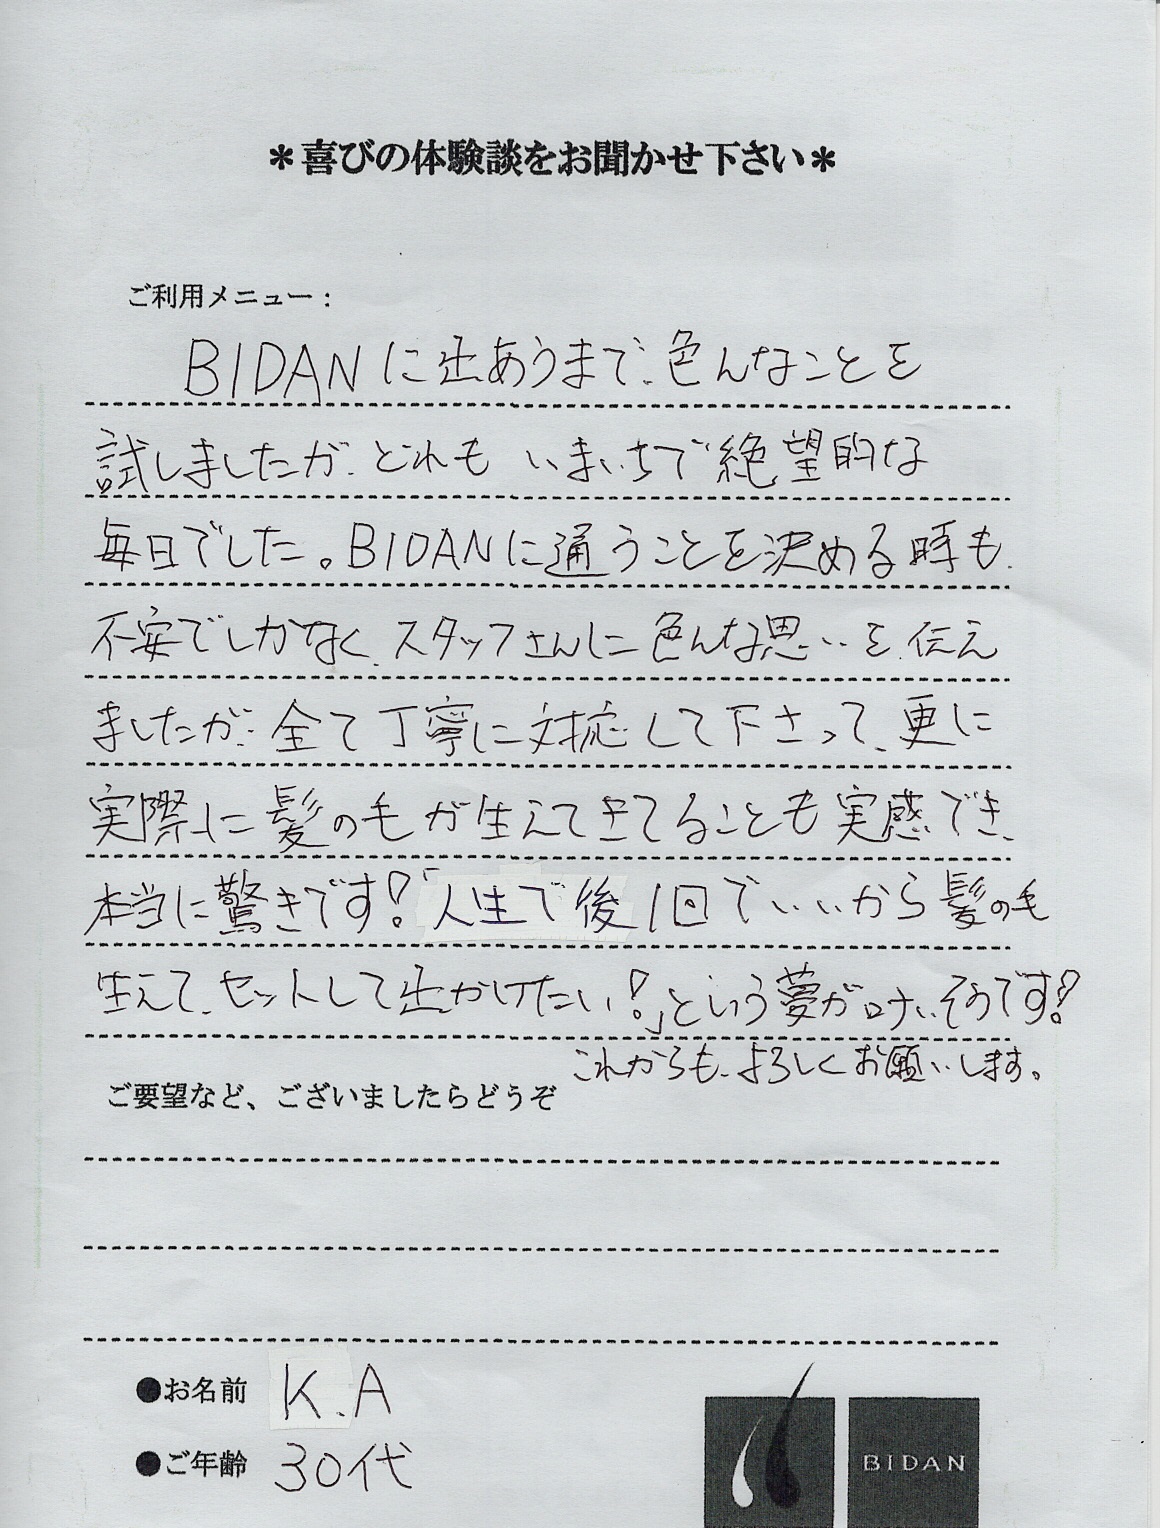 ＊喜びの体験談をお聞かせ下さい＊
ご利用メニュー：
BIDANに出あうまで、色んなことを
試しましたが、どれも いまいちで絶望的な
毎日でした。BIDANに通うことを決める時も、
不安でしかなく、スタッフさんに色んな思いを、伝え
ましたが、全て丁寧に対応して下さって、更に
実際に髪の毛が生えてきてることも実感でき、
本当に驚きです！「人生で後1回でいいから髪の毛
生えて、セットして出かけたい！」という夢が叶いそうです！
これからも、よろしくお願いします。
ご要望など、ございましたらどうぞ
●お名前 K.A
●ご年齢 30代
BIDAN